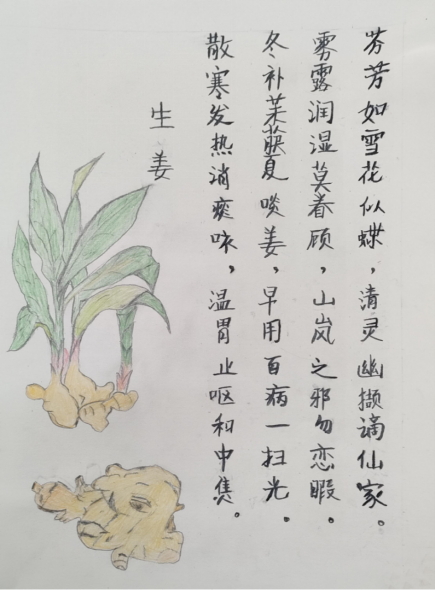 芬芳如雪花似蝶，清灵幽撷谪仙家。
雾露润湿莫眷顾，山岚之邪勿恋暇。
冬补茱萸夏啖姜，早用百病一扫光。
散寒发热消痰咳，温胃止呕和中焦。
生姜